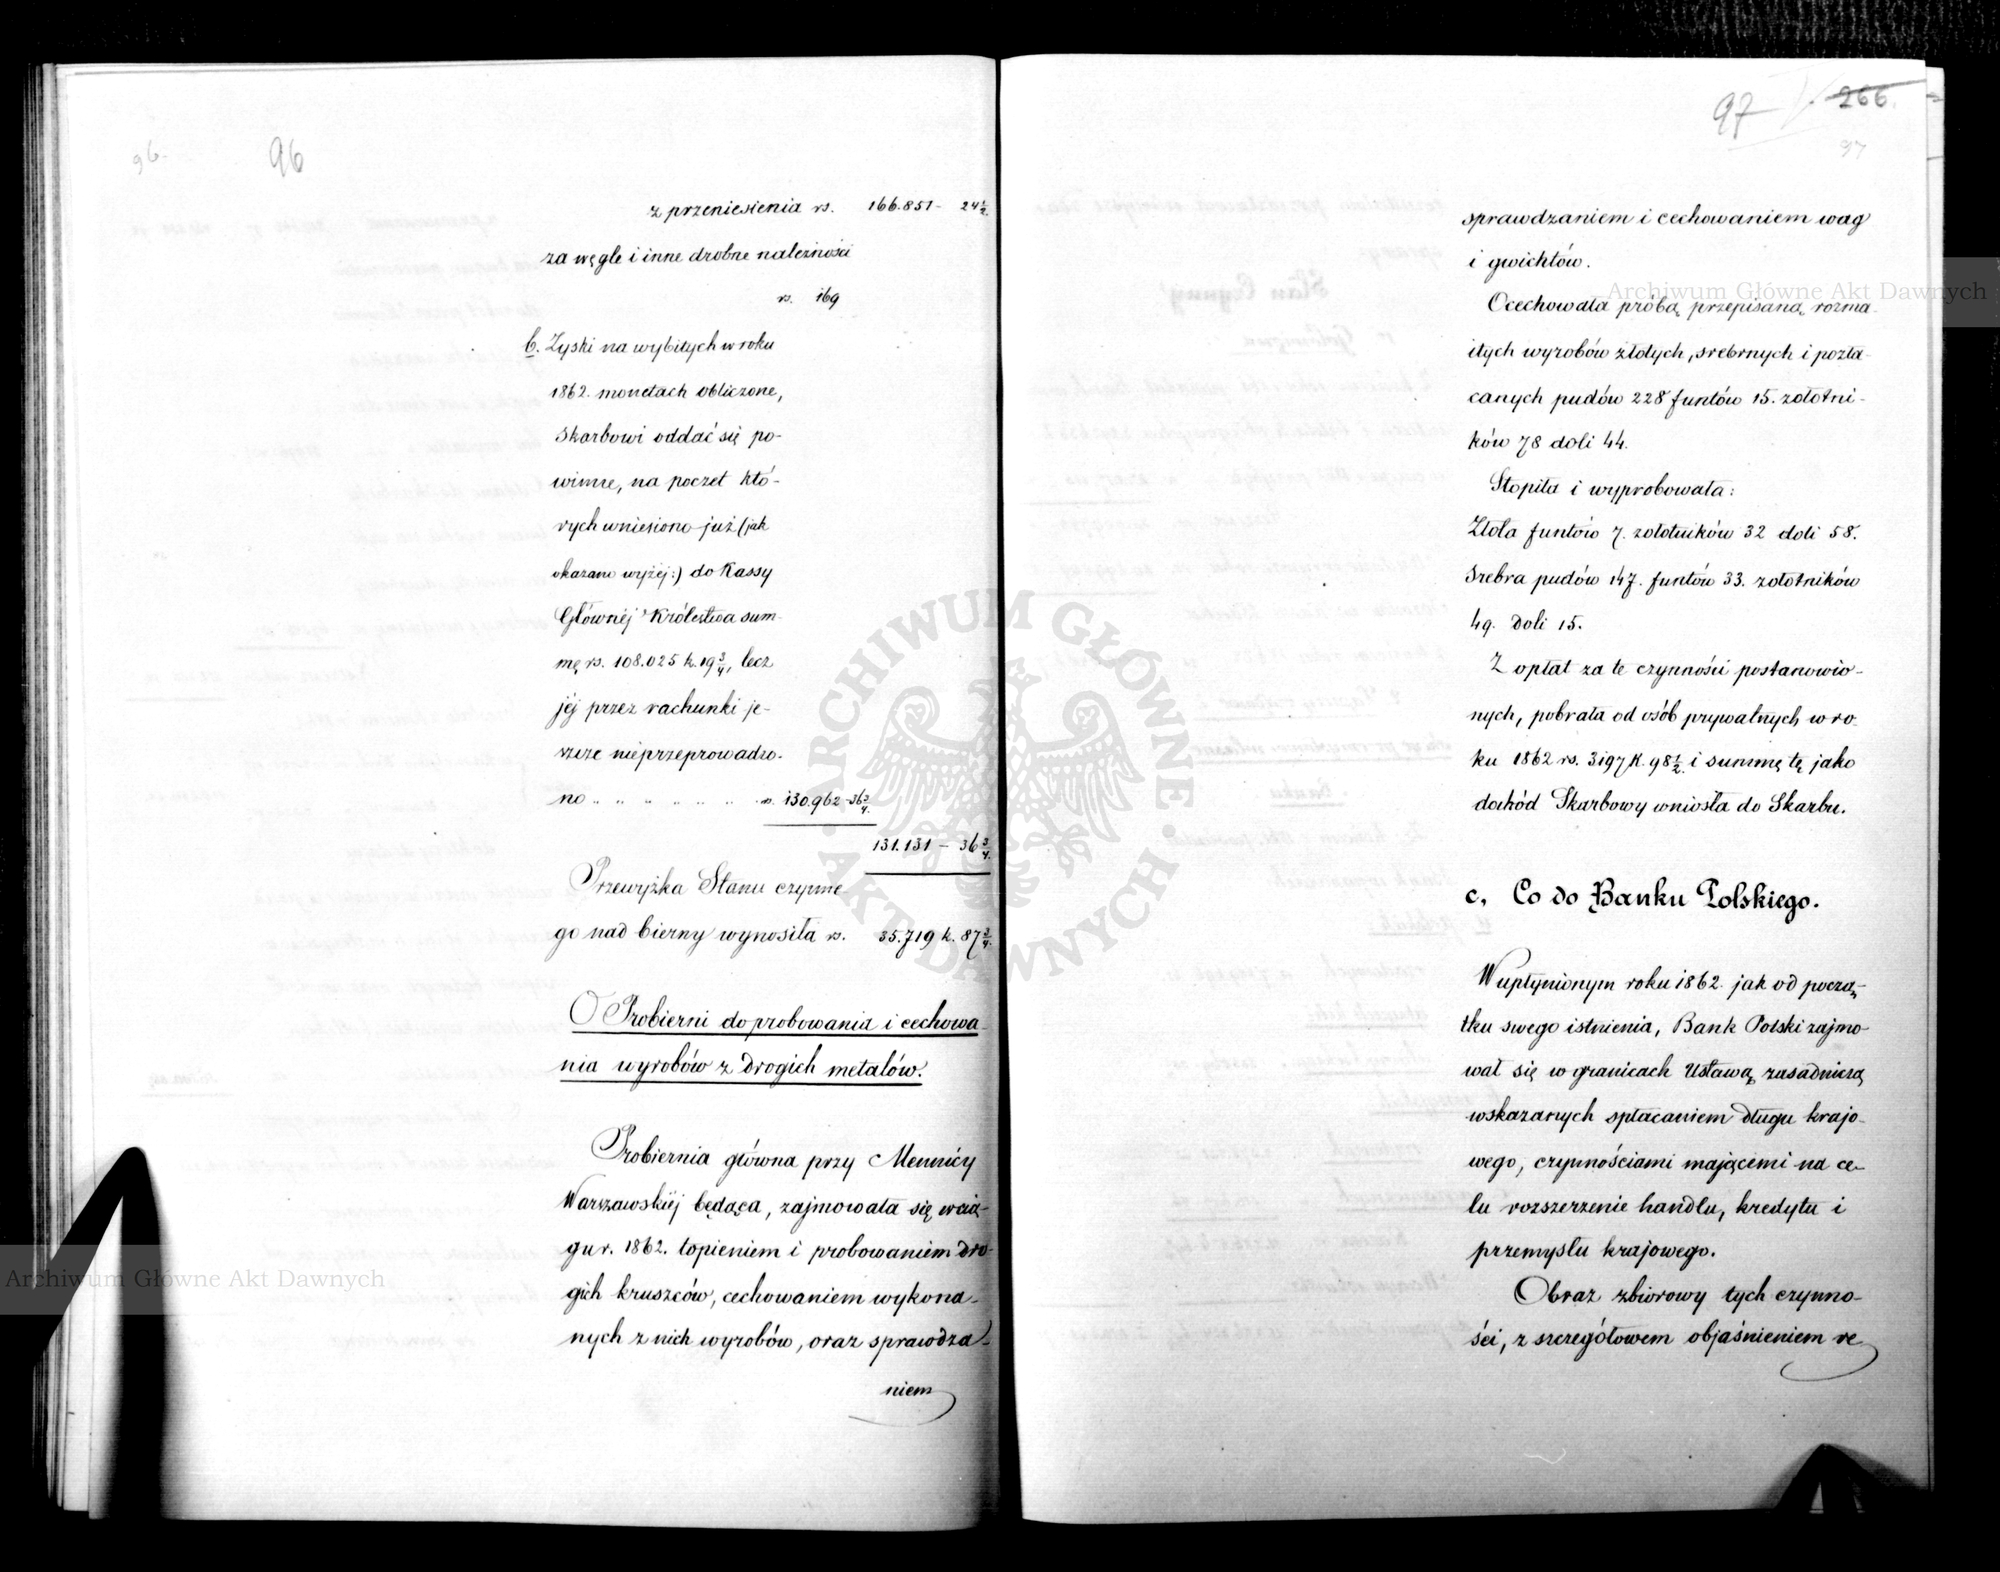 96.
96
z przeniesienia rs. 166.851 – 24 1/2.
za węgle i inne drobne należności
rs. 169
b. Zyski na wybitych w roku
1862. monetach obliczone,
Skarbowi oddać się po-
winne, na poczet któ-
rych wniesiono już (jak
okazano wyżej:) do Kassy
Głównéj Królestwa sum-
mę rs. 108.025 k. 19 3/4, lecz
jéj przez rachunki je-
szcze nieprzeprowadzo-
no " " " " " " rs. 130.962 – 36 3/4.
131.131 – 36 3/4.
Przewyżka Stanu czynne-
go nad bierny wynosiła rs. 35.719 k. 87 3/4.
O Probierni do probowania i cechowa-
nia wyrobów z drogich metalów.
Probiernia główna przy Mennicy
Warszawskiéj będąca, zajmowała się wcią-
gu r. 1862. topieniem i probowaniem dro-
gich kruszców, cechowaniem wykona-
nych z nich wyrobów, oraz sprawdza-
niem
97 266.
97
sprawdzaniem i cechowaniem wag
i gwichtów.
Ocechowała próbą przepisaną rozma-
itych wyrobów złotych, srebrnych i pozła-
canych pudów 228 funtów 15. zołotni-
ków 78 doli 44.
Stopiła i wyprobowała:
Złota funtów 7. zołotników 32 doli 58.
Srebra pudów 147. funtów 33. zołotników
49. doli 15.
Z opłat za te czynności postanowio-
nych, pobrała od osób prywatnych w ro-
ku 1862 rs. 3197 k. 98 1/2. i summę tę jako
dochód Skarbowy wniosła do Skarbu.
c, Co do Banku Polskiego.
W upłynionym roku 1862. jak od począ-
tku swego istnienia, Bank Polski zajmo-
wał się w granicach Ustawą zasadniczą
wskazanych spłacaniem długu krajo-
wego, czynnościami mającemi na ce-
lu rozszerzenie handlu, kredytu i
przemysłu krajowego.
Obraz zbiorowy tych czynno-
ści, z szczegółowem objaśnieniem re-
Archiwum Główne Akt Dawnych
Archiwum Główne Akt Dawnych
ARCHIWUM GŁÓWNE
AKT DAWNYCH